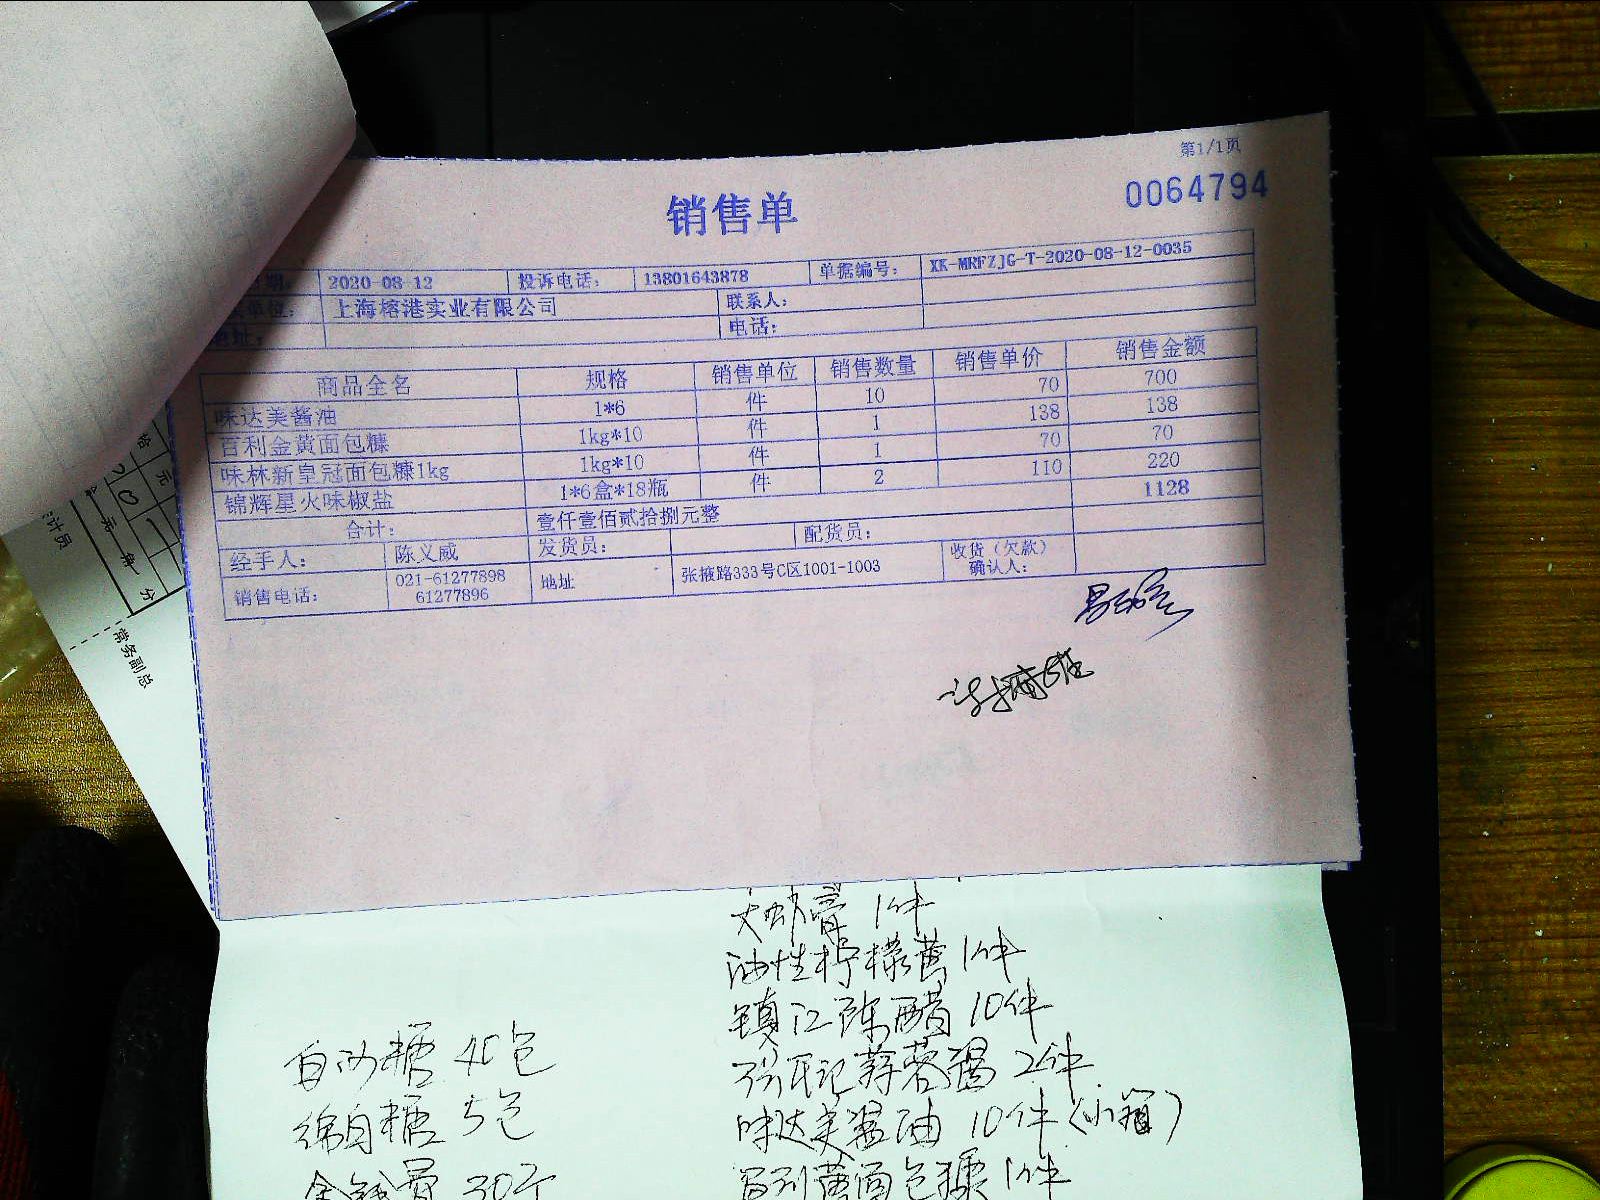 第1/1页
0064794
销售单
期: 2020-08-12 投诉电话: 13801643878 单据编号: XK-MRFZJG-T-2020-08-12-0035
单位: 上海榕港实业有限公司 联系人:
地址: 电话:
商品全名 规格 销售单位 销售数量 销售单价 销售金额
味达美酱油 1*6 件 10 70 700
百利金黄面包糠 1kg*10 件 1 138 138
味林新皇冠面包糠1kg 1kg*10 件 1 70 70
锦辉星火味椒盐 1*6盒*18瓶 件 2 110 220
合计: 壹仟壹佰贰拾捌元整 1128
经手人: 陈义威 发货员: 配货员:
销售电话: 021-61277898 61277896 地址 张掖路333号C区1001-1003 收货(欠款)确认人:
元
分
计员
常务副总
1件
油性柠檬黄 1件
镇江陈醋 10件
白砂糖 40包
蒜蓉 2件
绵白糖 5包
味达美酱油 10件(小箱)
百利黄面包糠 1件